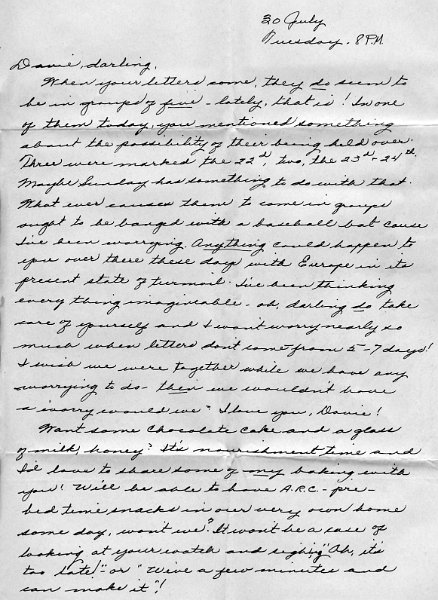 20 July
Tuesday. 8 P.M
Davie, darling,
When your letters come, they do seem to
be in groups of five - lately, that is! In one
of them today, you mentioned something
about the possibility of their being held over.
Three were marked the 22nd, two, the 23rd - 24th.
Maybe Sunday has something to do with that.
What ever causes them to come in groups
ought to be banged with a baseball bat cause
I've been worrying. Anything could happen to
you over there these days with Europe in its
present state of turmoil. I've been thinking
every thing imagineable - oh, darling do take
care of yourself and I wont worry nearly so
much when letters dont come from 5-7 days!
I wish we were together while we have any
worrying to do - then we wouldn't have
a worry would we? I love you, Davie!
Want some chocolate cake and a glass
of milk, honey? It's nourishment time and
I'd love to share some of my baking with
you! We'll be able to have A.R.C. - pre-
bed time snacks in our very own home
some day, won't we? It won't be a case of
looking at your watch and sighing "Oh, it's
too late!" - or "We've a few minutes and
can make it"!